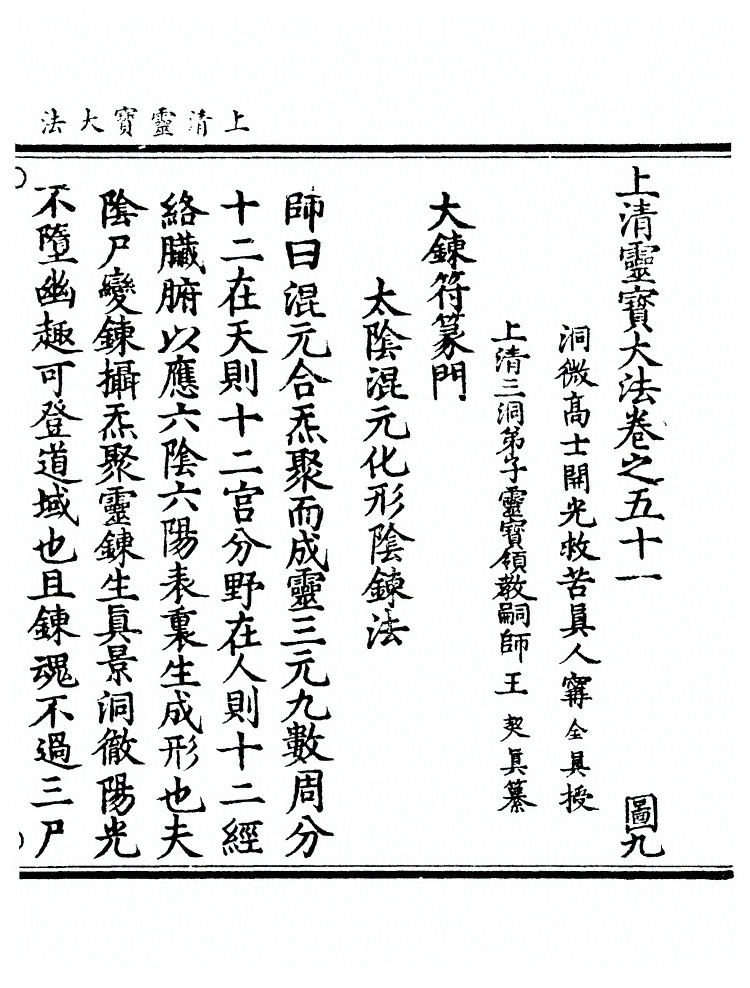 上清靈寶大法
上清靈寶大法卷之五十一 圖九
洞微高士開光救苦眞人甯全眞授
上清三洞弟子靈寶領敎嗣師王契眞纂
大鍊符篆門
太陰混元化形陰鍊法
師曰混元合炁聚而成靈三元九數周分
十二在天則十二宫分野在人則十二經
絡臟腑以應六陰六陽表裏生成形也夫
陰尸變鍊攝炁聚靈鍊生眞景洞徹陽光
不墮幽趣可登道域也且鍊魂不過三尸